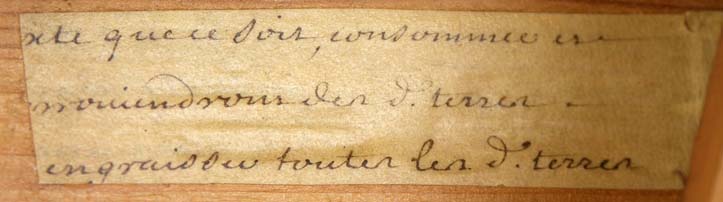 xte que ce soit, consommée et
proviendront des d.s terres
engraisser toutes les d.s terres